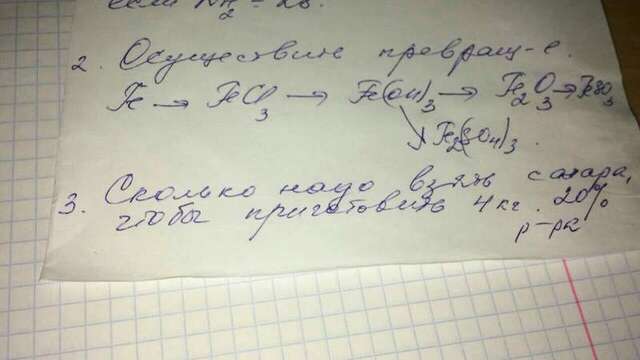 если
2. Осуществить превращ-е.
Fe → FeCl3 → Fe(OH)3 → Fe2O3 →
Fe2(SO4)3.
3. Сколько надо взять сахара,
чтобы приготовить 4 кг. 20%
р-ра